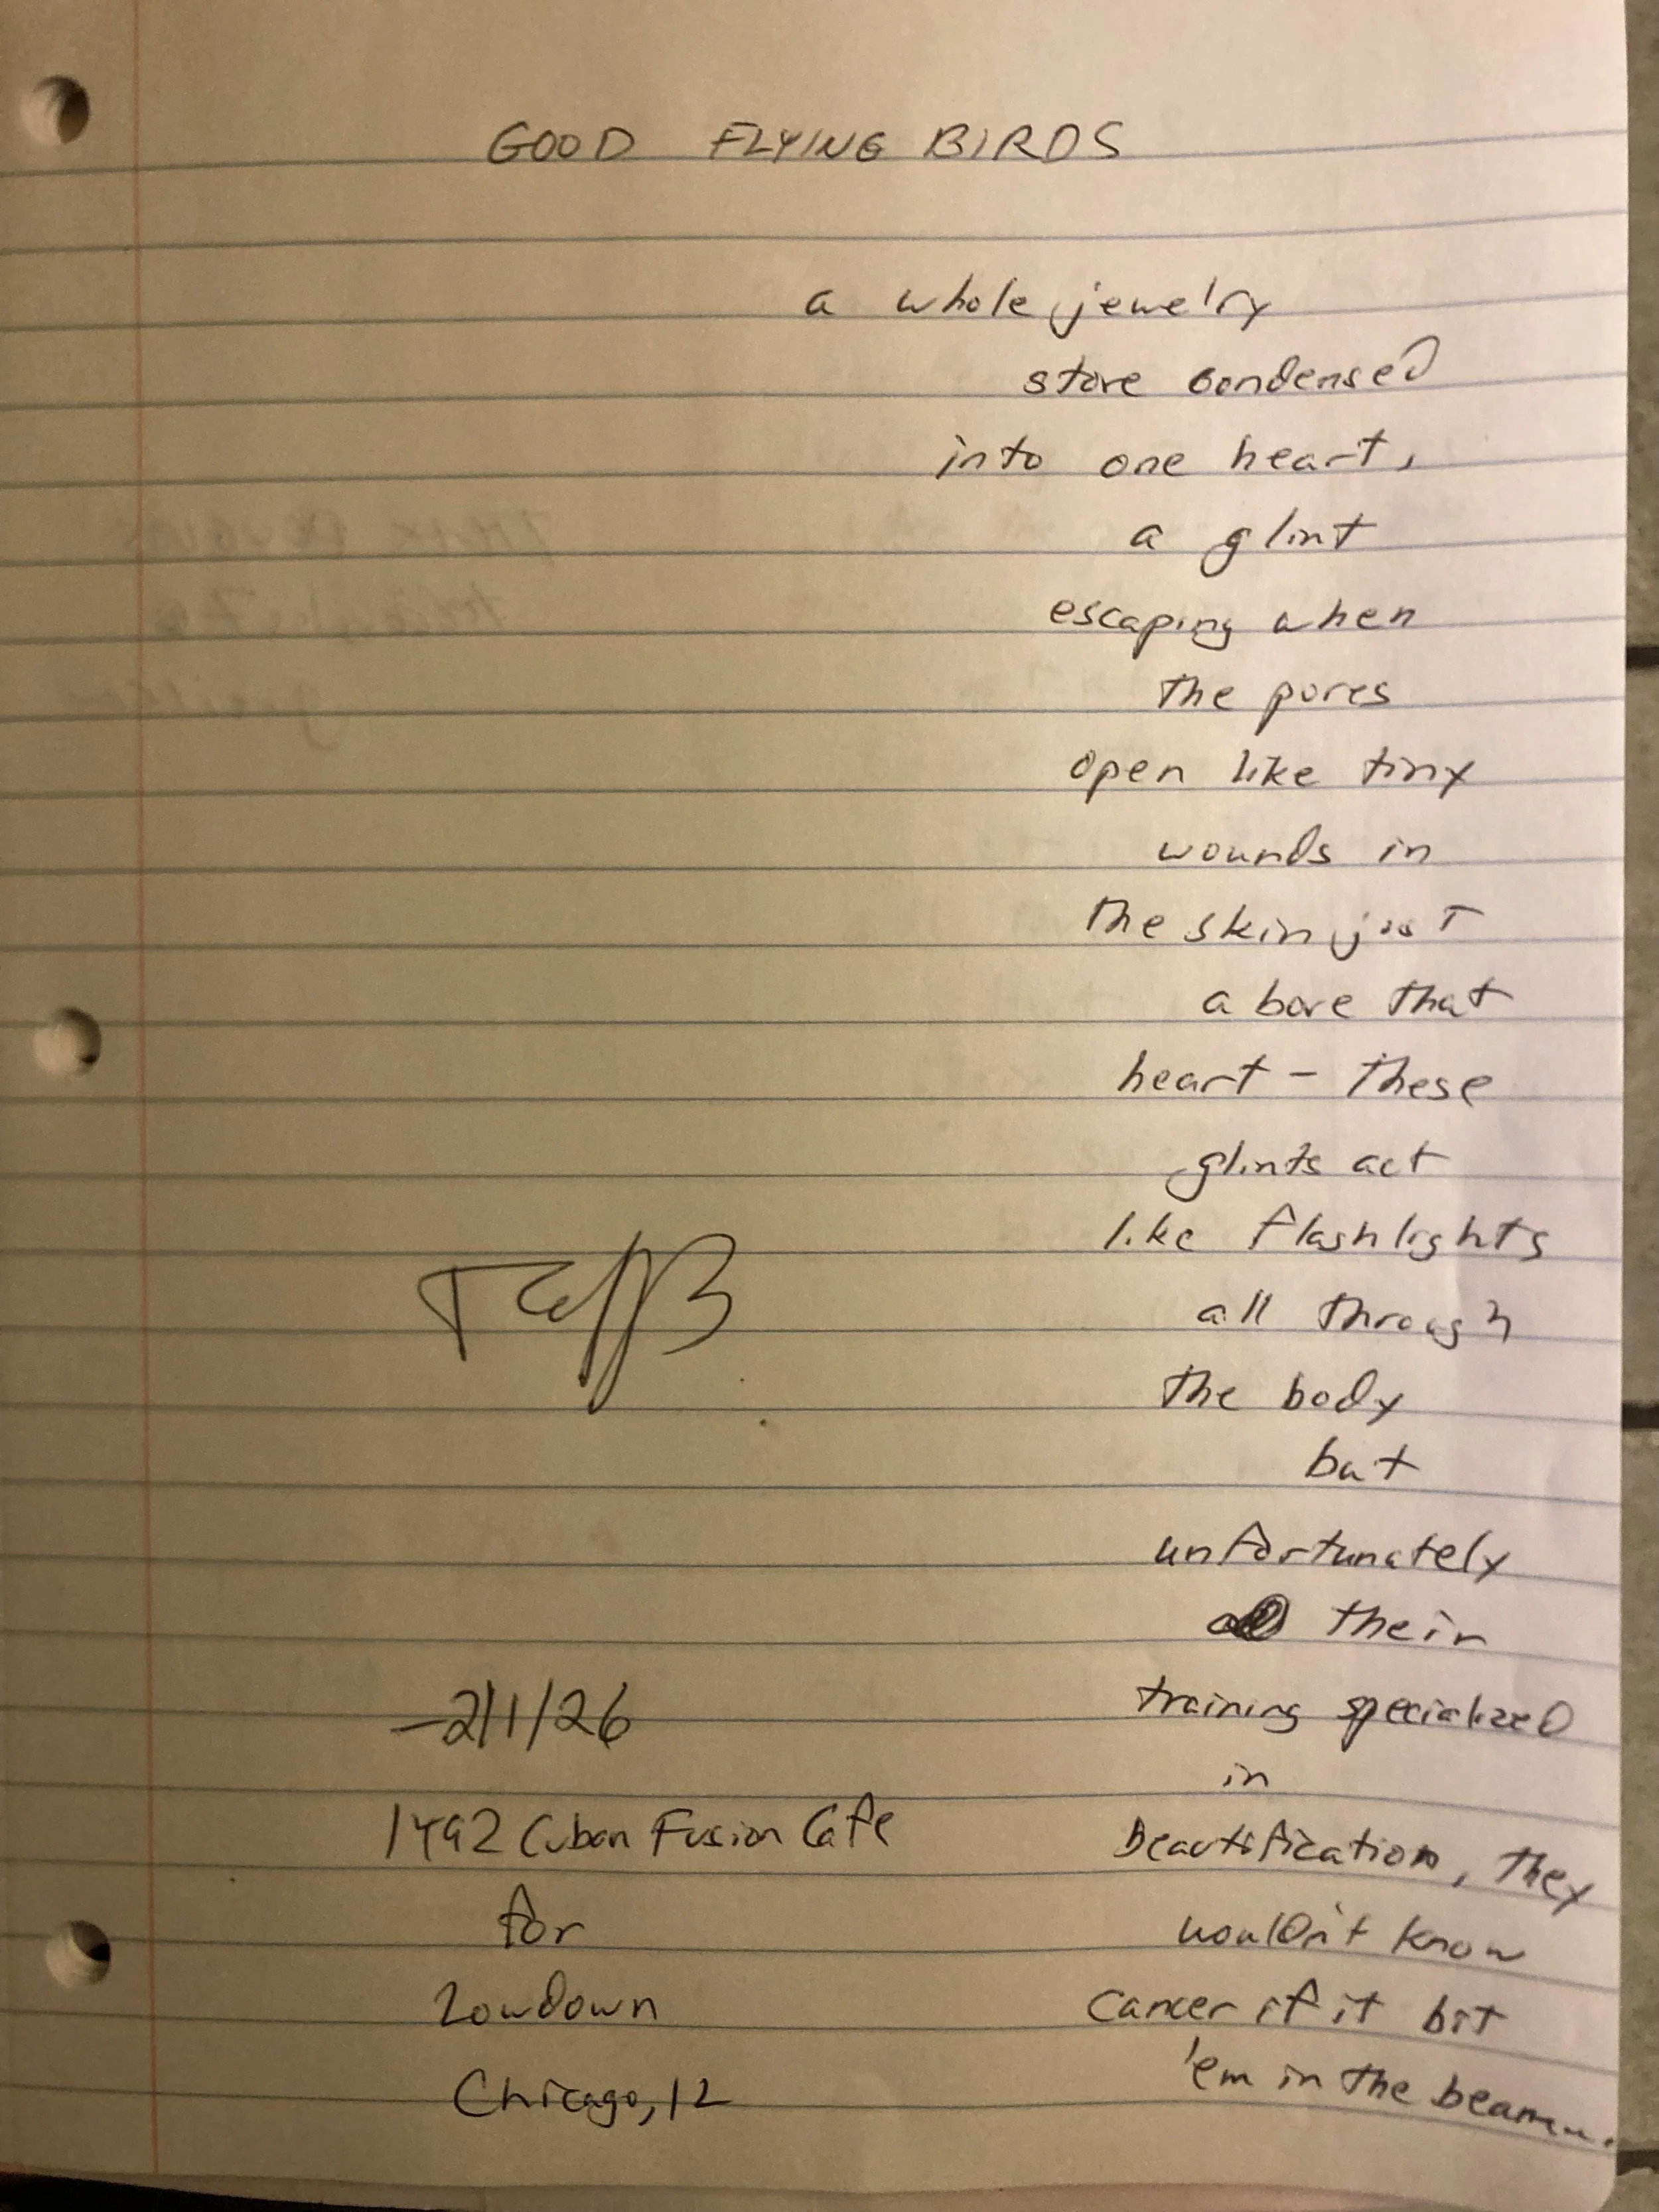 GOOD FLYING BIRDS
a whole jewelry
store condensed
into one heart,
a glint
escaping when
the pores
open like tiny
wounds in
the skin just
above that
heart – these
glints act
like flashlights
all through
the body
but
unfortunately
their
training specialized
in
beautification, they
wouldn't know
cancer if it bit
'em in the beam...
–2/1/26
1492 Cuban Fusion Cafe
for
Lowdown
Chicago, IL